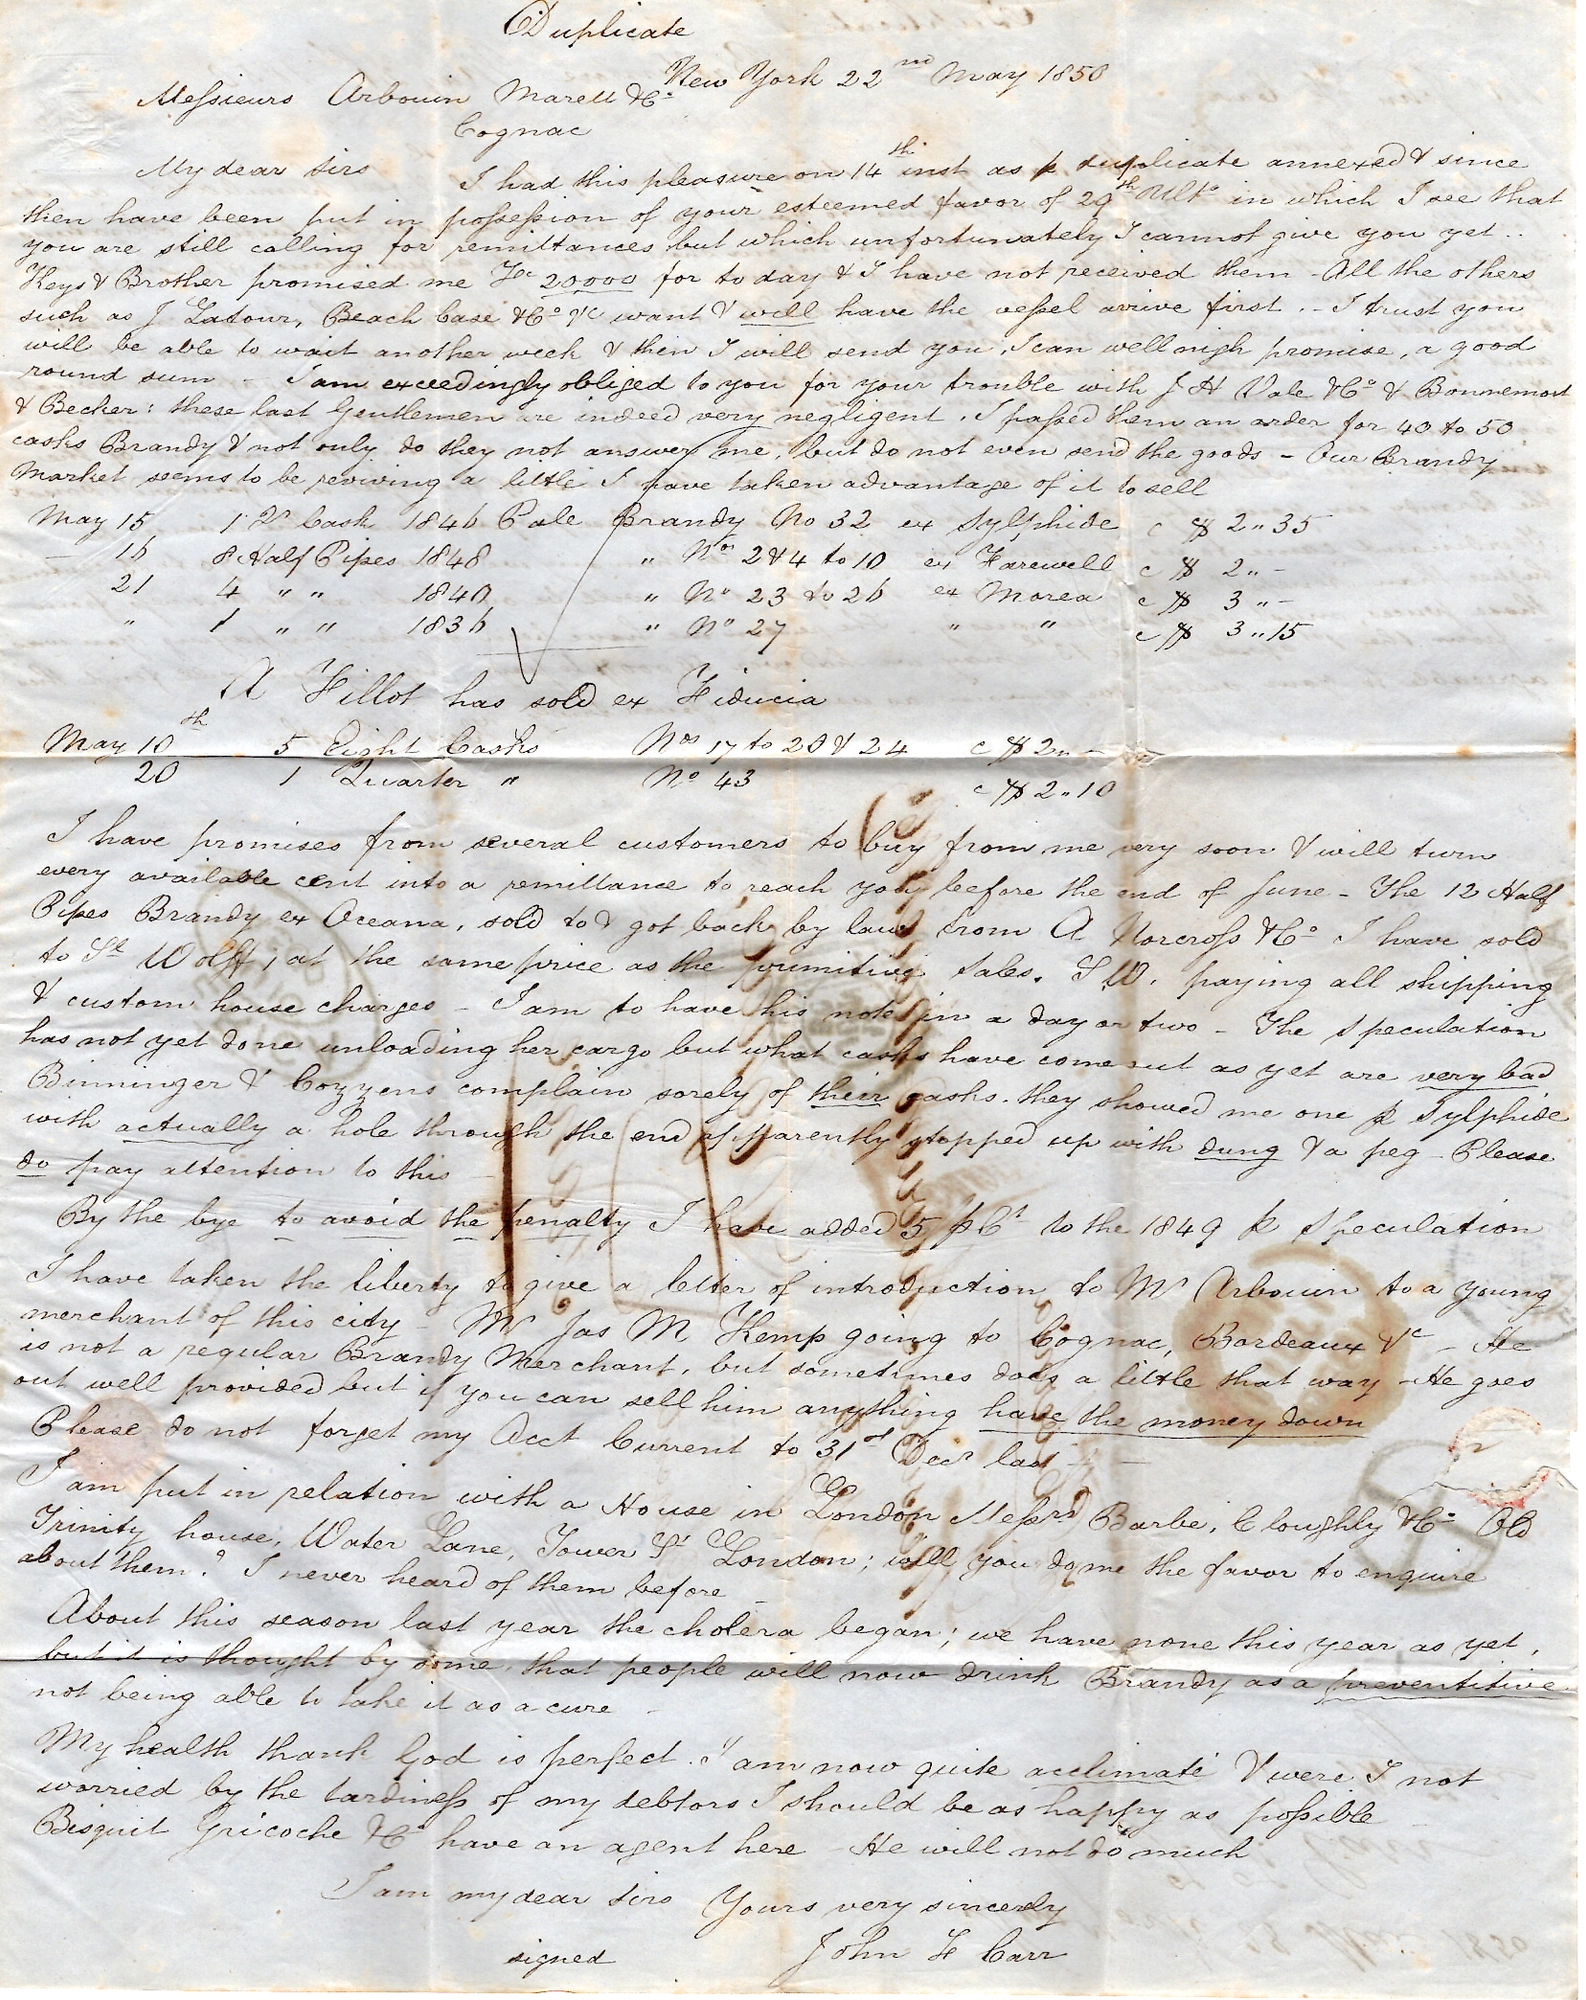 Duplicate
New York 22nd May 1850
Messieurs Arbouin Marett & Co
Cognac
My dear Sirs I had this pleasure on 14th inst as p duplicate annexed & since
then have been put in possession of your esteemed favor of 29th Ulto in which I see that
you are still calling for remittances but which unfortunately I cannot give you yet..
Keys & Brother promised me Fc 20000 for to day & I have not received them - All the others
such as J Latour, Beach Case & Co &c want & will have the vessel arrive first. - I trust you
will be able to wait another week & then I will send you, I can well nigh promise, a good
round sum - I am exceedingly obliged to you for your trouble with J H Vale & Co & Bonnemort
& Becker: these last Gentlemen are indeed very negligent. I passed them an order for 40 to 50
casks Brandy & not only do they not answer me, but do not even send the goods - Our Brandy
Market seems to be reviving a little I have taken advantage of it to sell
May 15 1 Qr Cask 1846 Pale Brandy No 32 ex Sylphide c $ 2"35
- 16 8 Half Pipes 1848 " Nos 2 & 4 to 10 ex Farewell c $ 2"-
21 4 " " 1840 " No 23 to 26 ex Morea c $ 3"-
" 1 " " 1836 " No 27 " " c $ 3"15
A Fillot has sold ex Fiducia
May 10th 5 Eight Casks Nos 17 to 20 & 24 c $ 2"-
20 1 Quarter " No 43 c $ 2"10
I have promises from several customers to buy from me very soon & will turn
every available cent into a remittance to reach you before the end of June - The 12 Half
Pipes Brandy ex Oceana, sold to & got back by law from A Norcross & Co I have sold
to Ud Wolff, at the same price as the primitive sales. W. paying all shipping
& custom house charges - I am to have his note in a day or two - The Speculation
has not yet done unloading her cargo but what casks have come out as yet are very bad
Binninger & Cozzens complain sorely of their casks. they showed me one p Sylphide
with actually a hole through the end apparently stopped up with dung & a peg - Please
do pay attention to this -
By the bye to avoid the penalty I have added 5 pCt to the 1849 p Speculation
I have taken the liberty to give a letter of introduction to Mr Arbouin to a young
merchant of this city - Mr Jas M Kemp going to Cognac, Bordeaux &c - He
is not a regular Brandy Merchant, but sometimes does a little that way - He goes
out well provided but if you can sell him anything have the money down
Please do not forget my Acct Current to 31st Decr last -
I am put in relation with a House in London Messrs Barbe, Cloughly & Co Old
Trinity house, Water Lane, Tower St London; will you do me the favor to enquire
about them? I never heard of them before -
About this season last year the cholera began; we have none this year as yet,
but it is thought by some, that people will now drink Brandy as a preventitive
not being able to take it as a cure -
My health thank God is perfect. I am now quite acclimaté & were I not
worried by the tardiness of my debtors I should be as happy as possible
Bisquit Tricoche & Co have an agent here - He will not do much
I am my dear Sirs Yours very sincerely
signed John F Carr